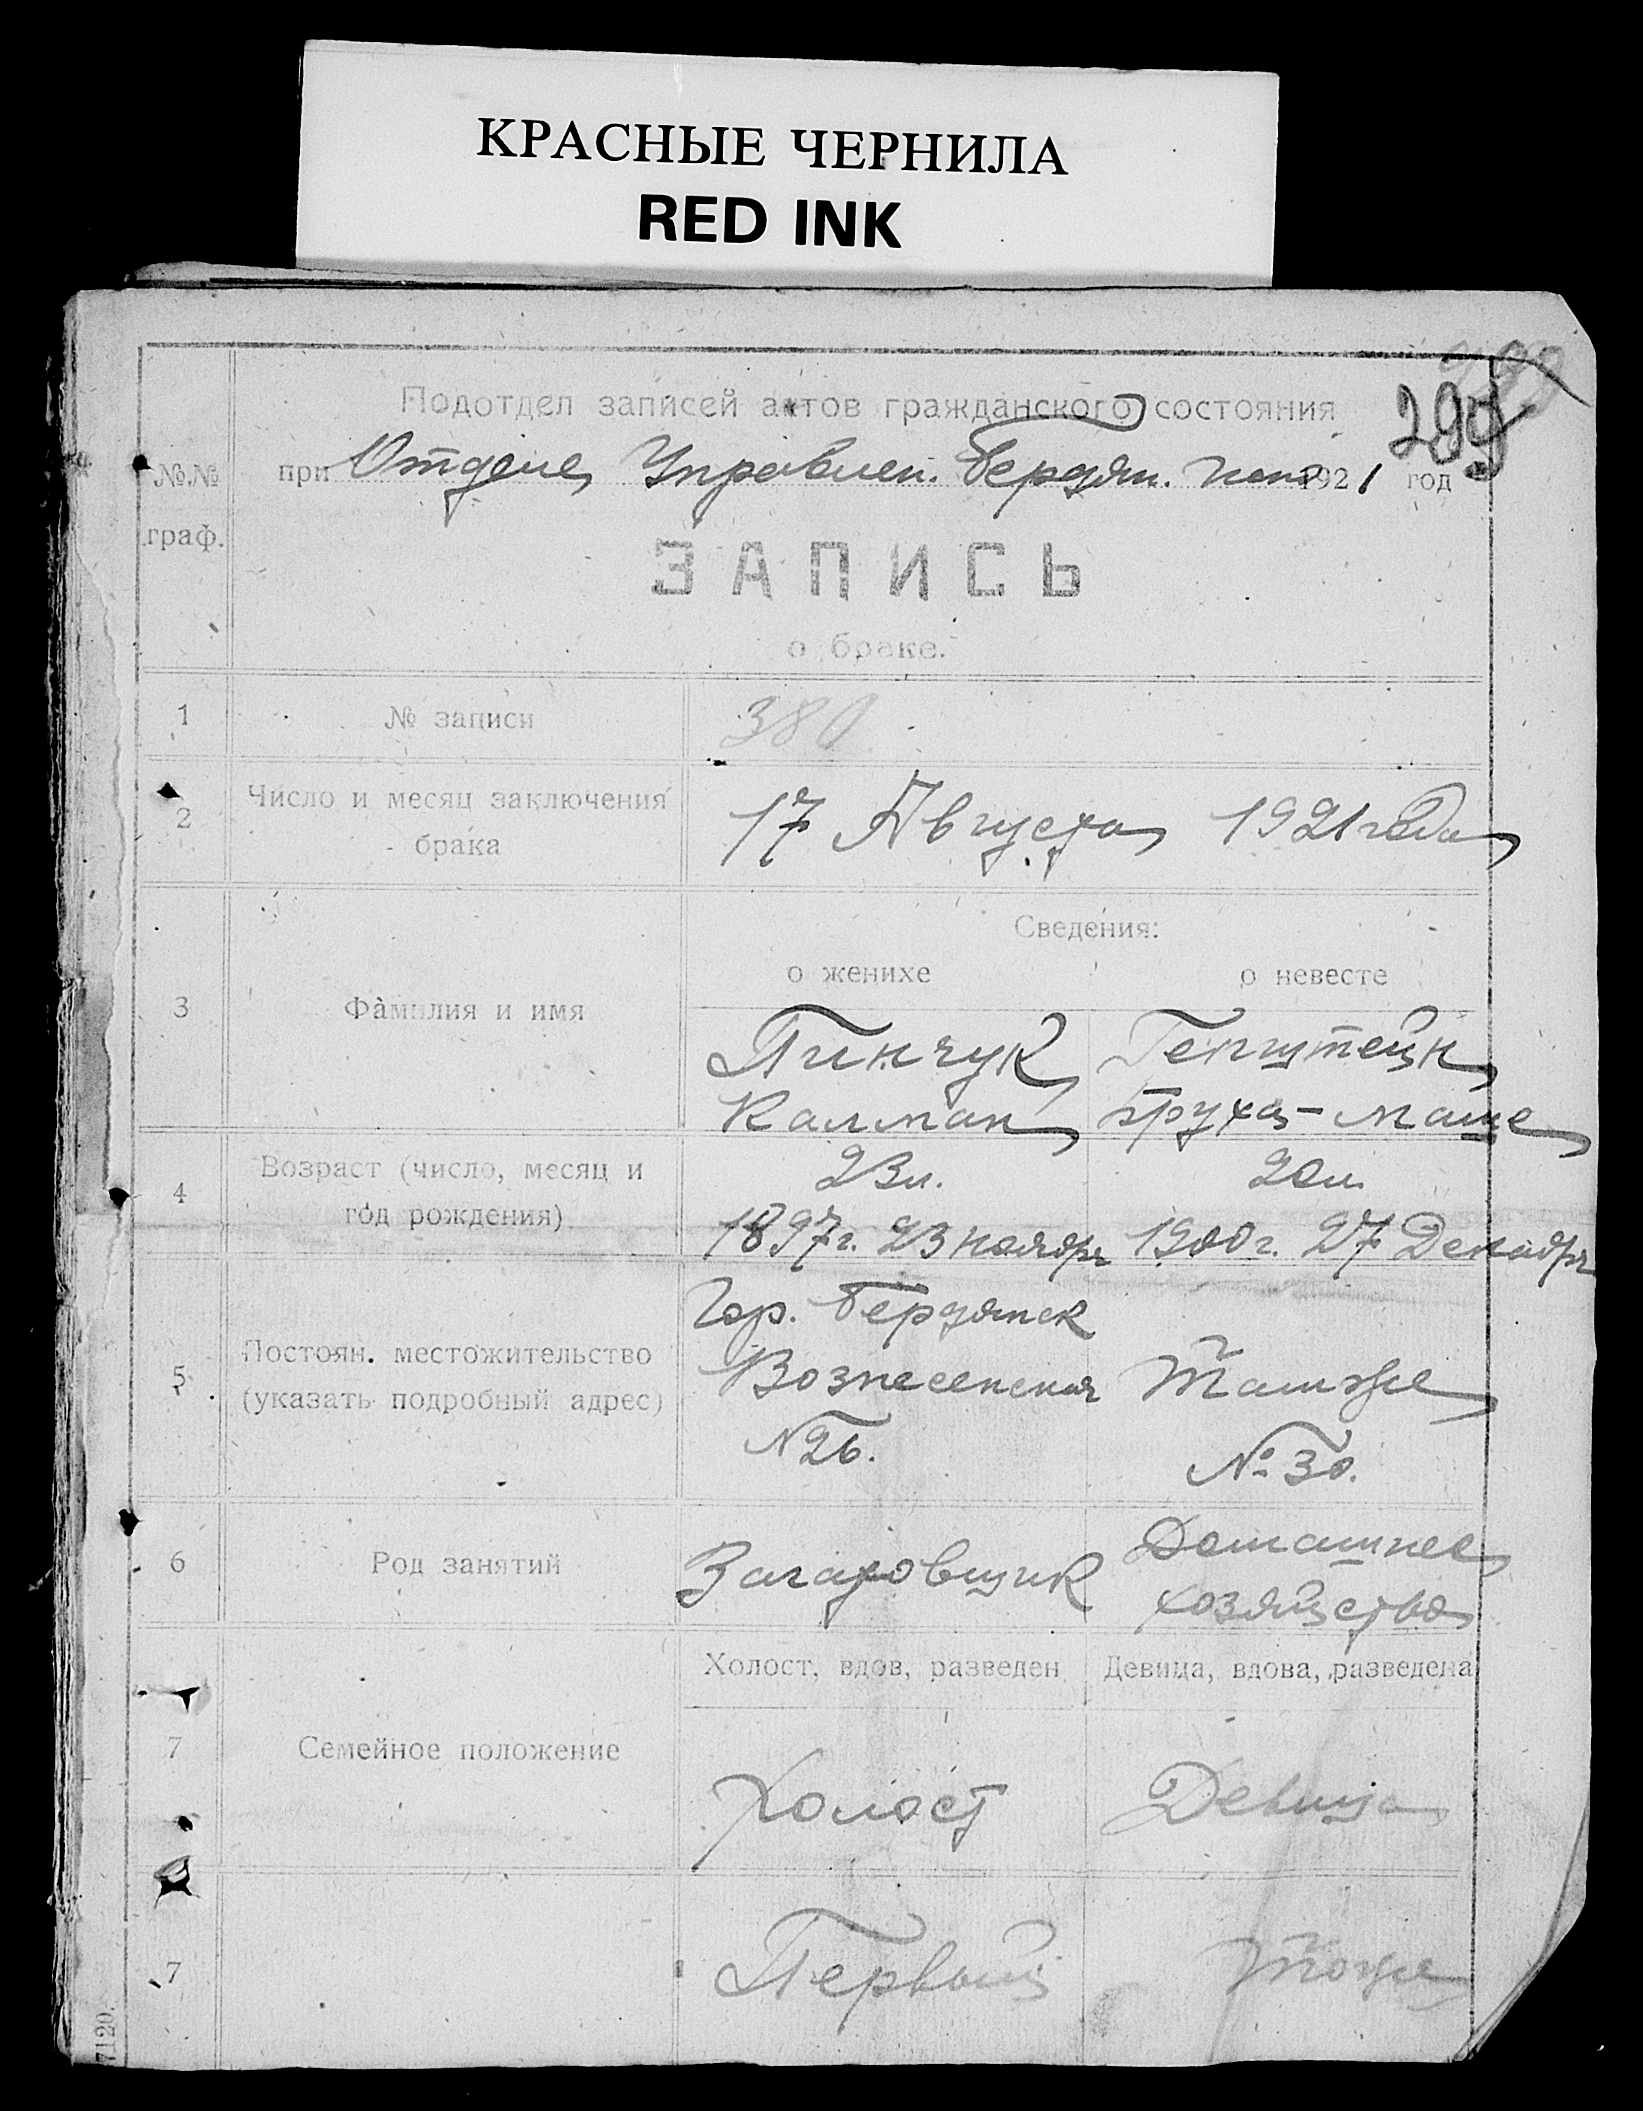 КРАСНЫЕ ЧЕРНИЛА
RED INK
299
Подотдел записей актов гражданского состояния
№.№ граф.
при Отделе Управлен. Бердян. 1921 год
ЗАПИСЬ
о браке.
1 № записи 380
2 Число и месяц заключения брака 17 Августа 1921 года
Сведения:
о женихе о невесте
3 Фамилия и имя
Пинчук Генштейн
Калман Бруха-Маше
4 Возраст (число, месяц и год рождения)
23 л. 20 л.
1897 г. 23 ноября 1900 г. 27 Декабря
5 Постоян. местожительство (указать подробный адрес)
Гор. Бердянск
Вознесенская Тамже
N 26. № 30.
6 Род занятий
Заготовщик Домашнее
хозяйство
Холост, вдов, разведен Девица, вдова, разведена
7 Семейное положение
Холост Девица
7 Первый тоже
7120.